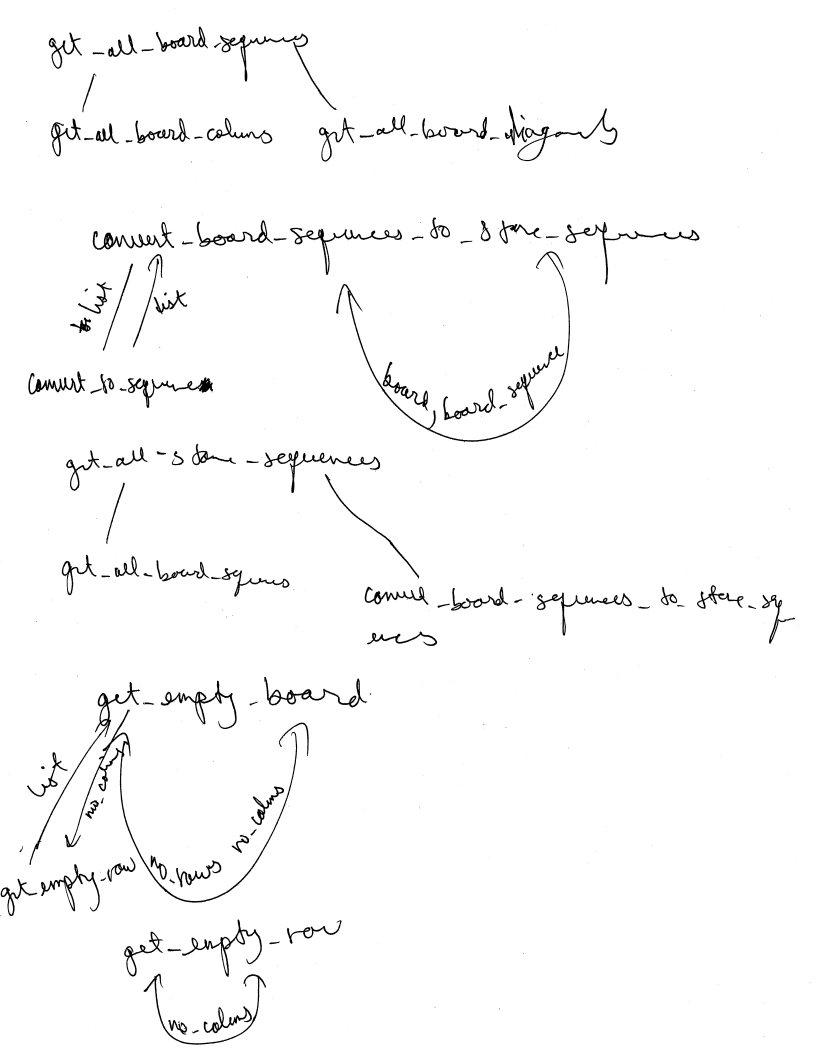 get_all_board_sequences
get_all_board_colums get_all_board_diagonals
convert_board_sequences_to_stone_sequences
list list
convert_to_sequence
board, board_sequence
get_all_stone_sequences
get_all_board_squnces
convert_board_sequences_to_stone_sequ
ences
get_empty_board
list no_colums
get_empty_row no_rows no_colms
get_empty_row
no_colums